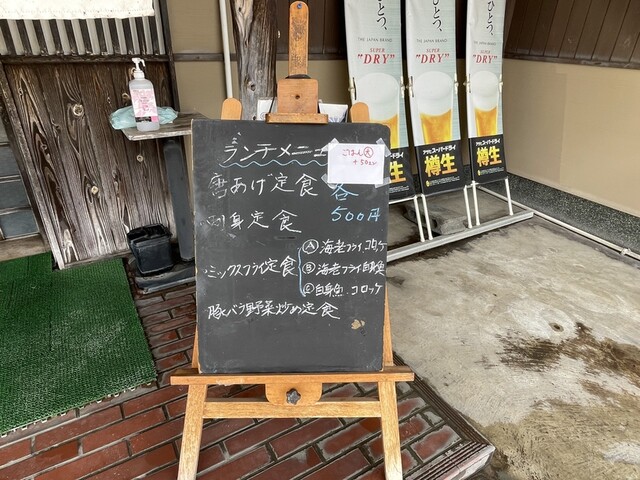 ランチメニュー
ごはん大
+50円
唐あげ定食 各
刺身定食 500円
ミックスフライ定食
Ⓐ海老フライ コロッケ
Ⓑ海老フライ 白身魚
Ⓒ白身魚 コロッケ
豚バラ野菜炒め定食
ひとつ、
THE JAPAN BRAND
SUPER
"DRY"
アサヒスーパードライ
樽生
ひとつ、
THE JAPAN BRAND
SUPER
"DRY"
アサヒスーパードライ
樽生
ひとつ、
THE JAPAN BRAND
SUPER
"DRY"
アサヒスーパードライ
樽生